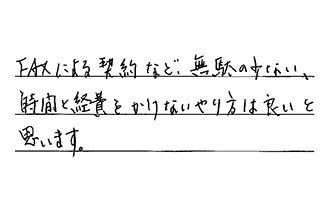 FAXによる契約など、無駄の少ない、
時間と経費をかけないやり方は良いと
思います。